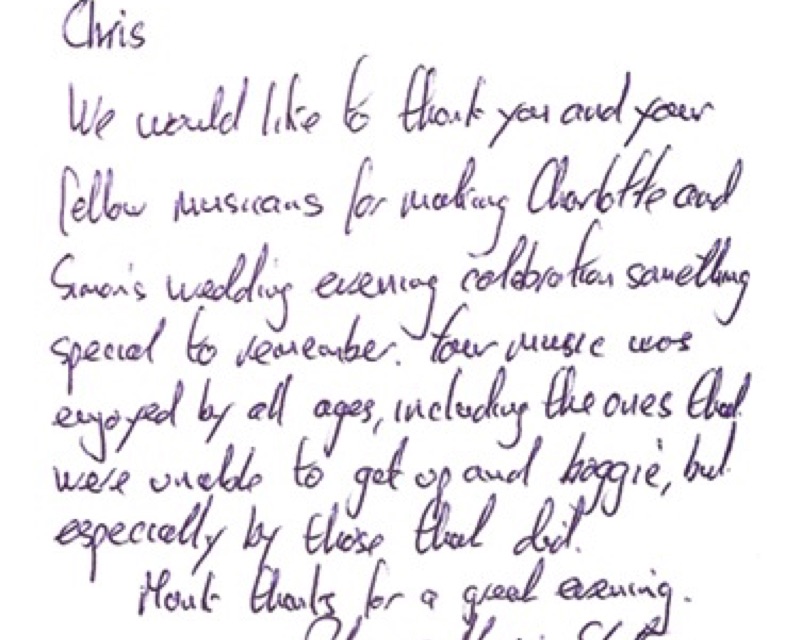 Chris
We would like to thank you and your
fellow musicians for making Charlotte and
Simon's wedding evening celebration something
special to remember. Your music was
enjoyed by all ages, including the ones that
were unable to get up and boggie, but
especially by those that did.
thanks for a great evening.